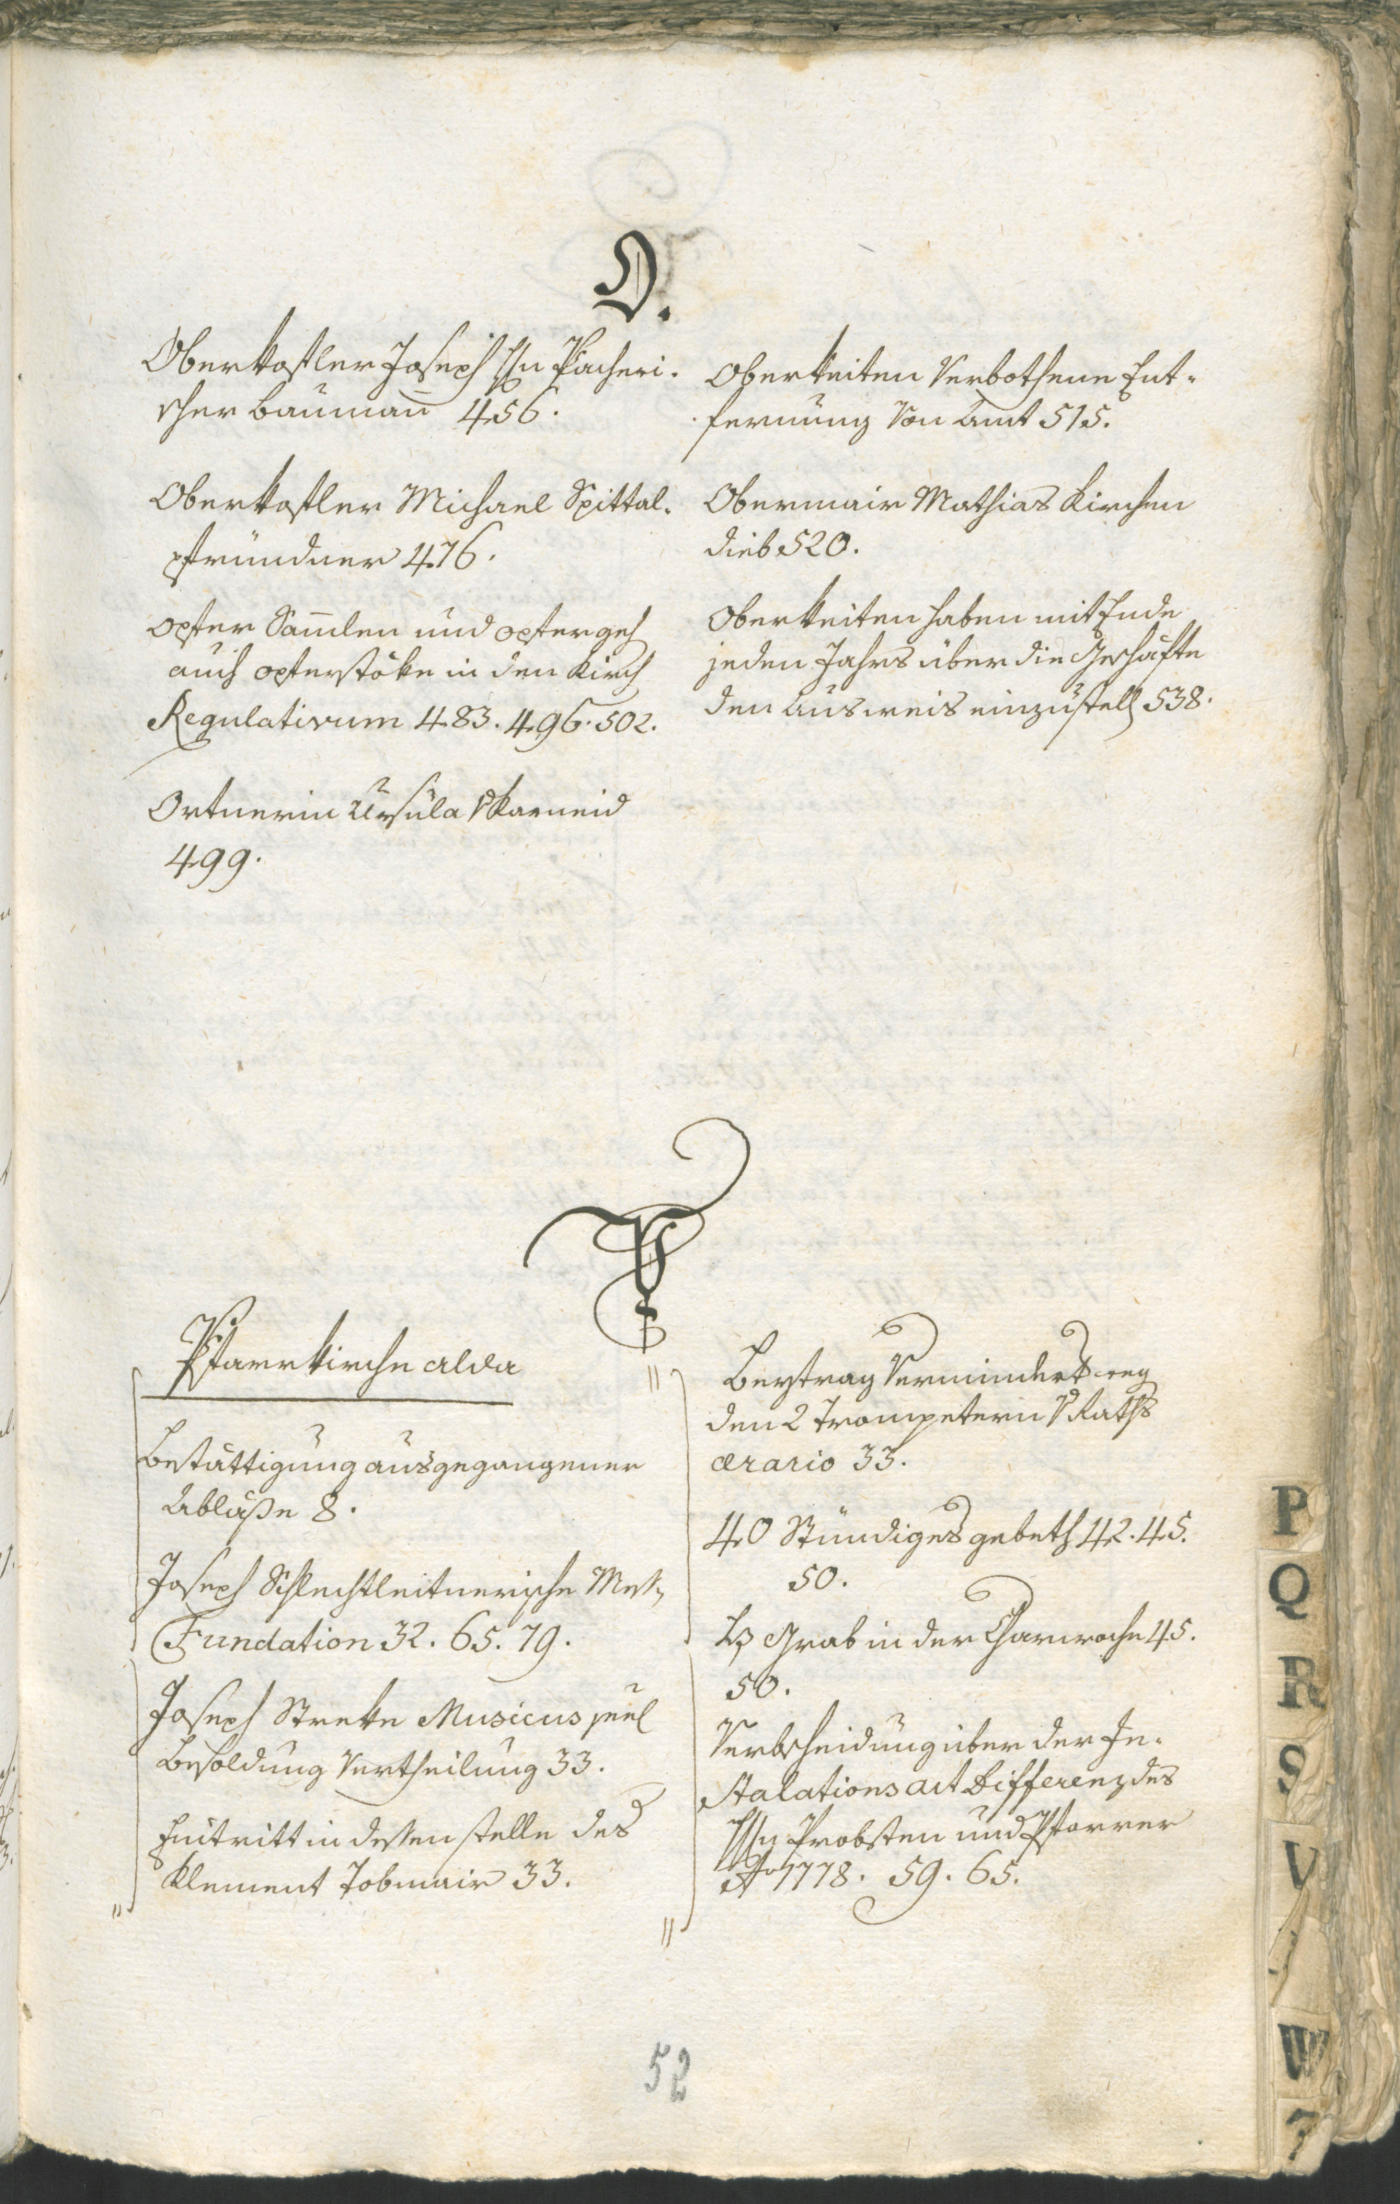 O.
Oberkofler Joseph Hn Pacheri-
scher Bauman̄ 456.
Oberkofler Michael Spittal-
pfründner 476.
Opfer Sam̄len und opfergeh
auch opferstöke in den Kirch
Regulativum 483. 496. 502.
Ortnerin Ursula Karneid
499.
Oberkeiten Verbothene Ent-
fernung Von Amt 515.
Obermair Mathias Kirchen
dieb 520.
Oberkeiten haben mit Ende
jeden Jahrs über die Geschäfte
den Ausweis einzustell 538.
P
Pfarrkirche alda
Bestättigung ausgegangener
Abläße 8.
Joseph Schlechtleitnerische Meß
Fundation 32. 65. 79.
Joseph Streke Musicus
Besoldung Vertheilung 33.
Eintritt in dessen stelle des
Klement Tobmair 33.
Beytrag Verminderter
den 2 Trompetern Raths
ærario 33.
40 Stündiges gebeth 42. 45.
50.
H. Grab in der Charwoche 45.
50.
Verbscheidung über der In-
stalations act Differenz des
Hn Probsten und Pfarrer
Ao 1778. 59. 65.
52
P
Q
R
S
V
W
Z